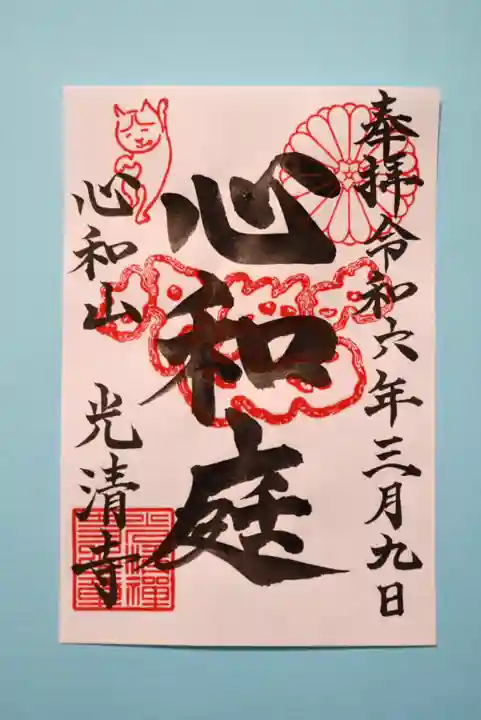 奉拝 令和六年三月九日
心和庭
心和山 光清寺